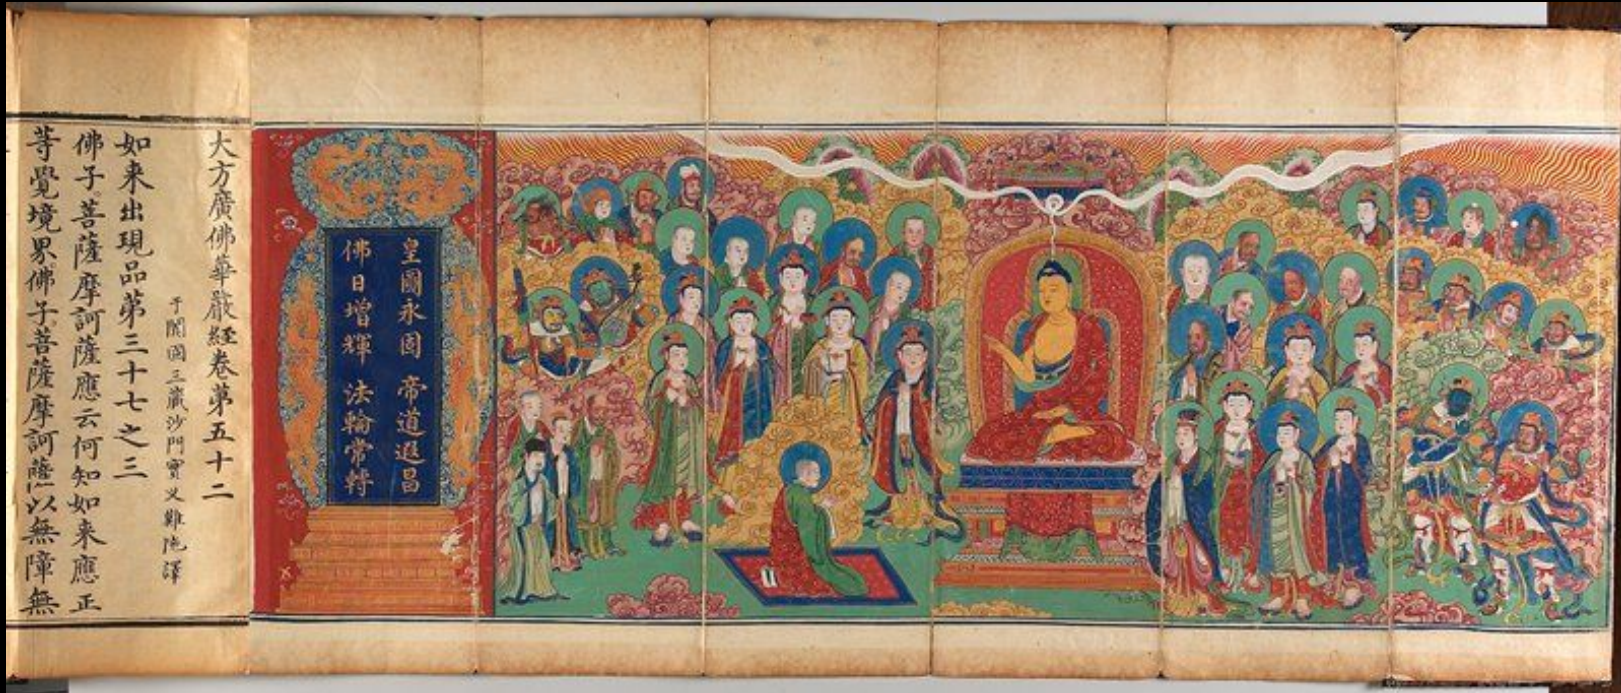 皇圖永固 帝道遐昌
佛日增輝 法輪常轉
大方廣佛華嚴経卷第五十二
于闐國三藏沙門實叉難陁譯
如来出現品第三十七之三
佛子。菩薩摩訶薩應云何知如来應正
等覺境界佛子菩薩摩訶薩以無障無